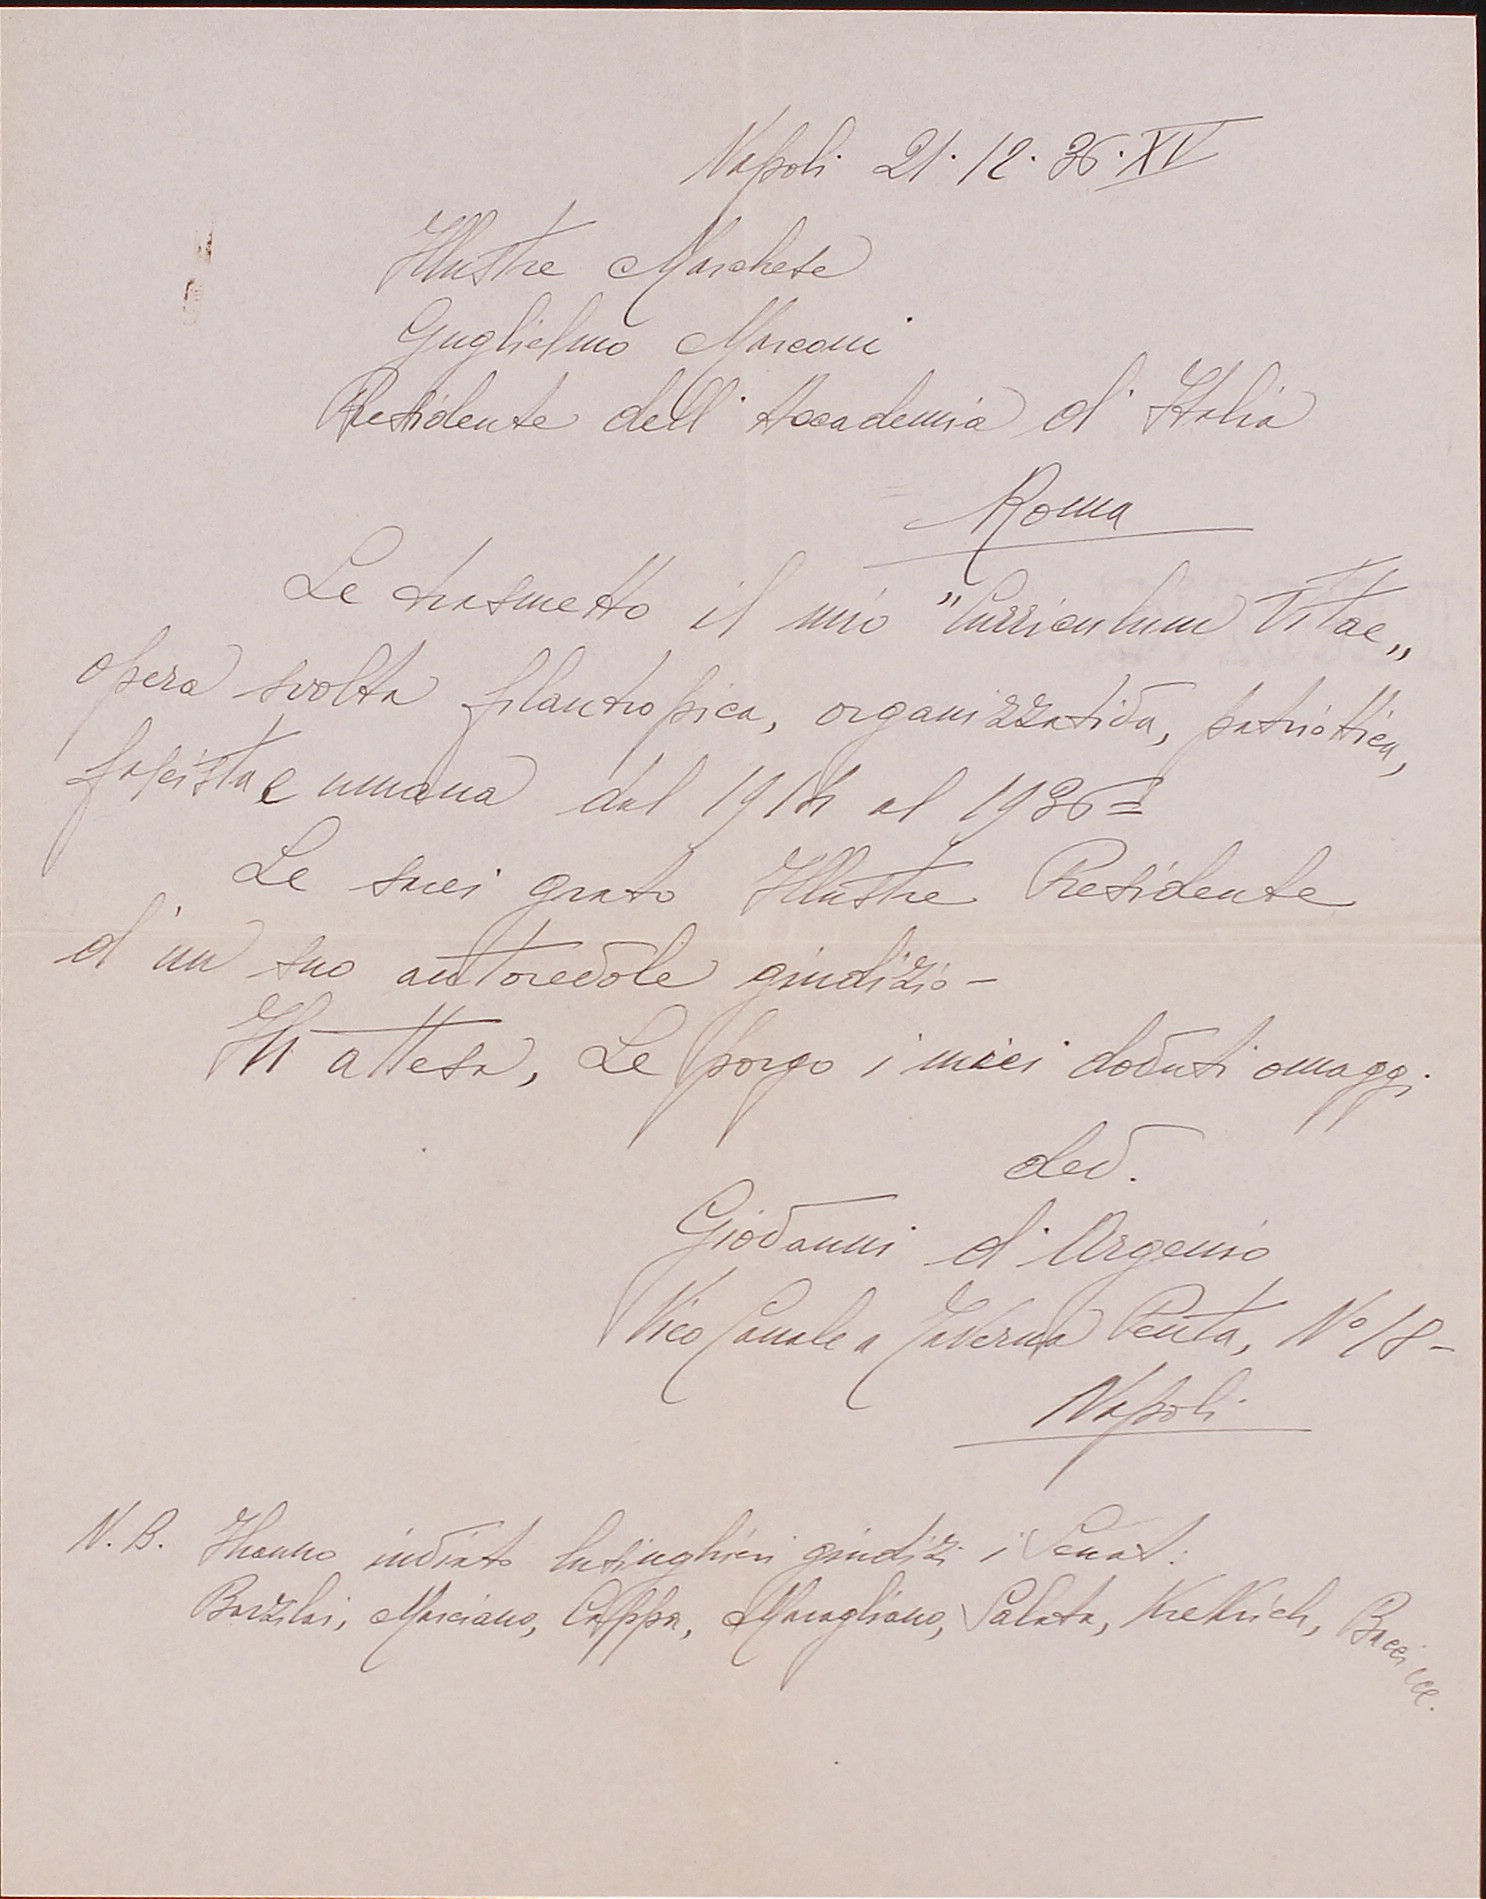 Napoli 21. 12. 36. XV
Illustre Marchese
Guglielmo Marconi
Presidente dell'Accademia d'Italia
Roma
Le trasmetto il mio "Curriculum Vitae„
opera svolta filantropica, organizzativa, patriottica,
fascista e umana dal 1914 al 1936=
Le sarei grato Illustre Presidente
d'un suo autorevole giudizio-
In attesa, Le porgo i miei dovuti omaggi.
dev.
Giovanni d'Argenio
Vico Canale a Taverna Penta, No 18-
Napoli
N.B. Hanno inviato lusinghieri giudizi i Senat:
Barzilai, Marciano, Cappa, Maragliano, Salata, Krekich, Bacci ecc.